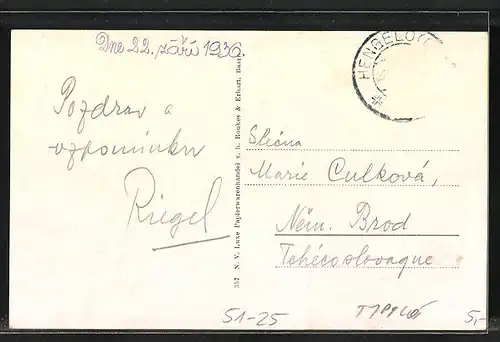 Dne 22. září 1936.
HENGELO
Pozdrav a
vzpomínku
Riegel
357 N. V. Luxe Papierwarenhandel v. h. Roukes & Erhart, Baarn
Slečna
Marie Culková,
Něm. Brod
Tchécoslovaque
51-25
5,-